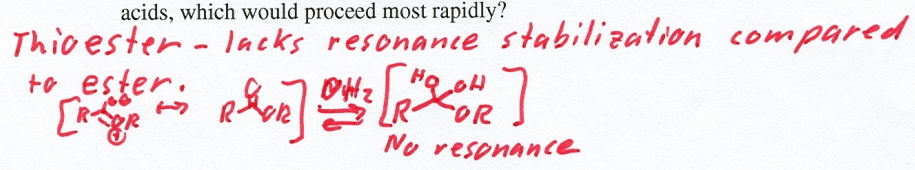 acids, which would proceed most rapidly?
Thioester - lacks resonance stabilization compared
to ester.
[R OR ⊕ ↔ R O OR] OH₂ ⇌ [HO OH R OR]
No resonance